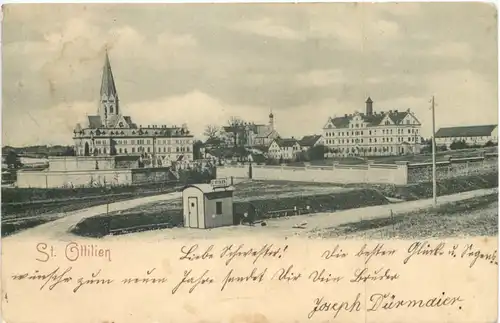 St. Ottilien
Liebe Schwester! Die besten Glück- u. Segens-
wünsche zum neuen Jahre sendet Dir Dein Bruder
Joseph Dürmaier